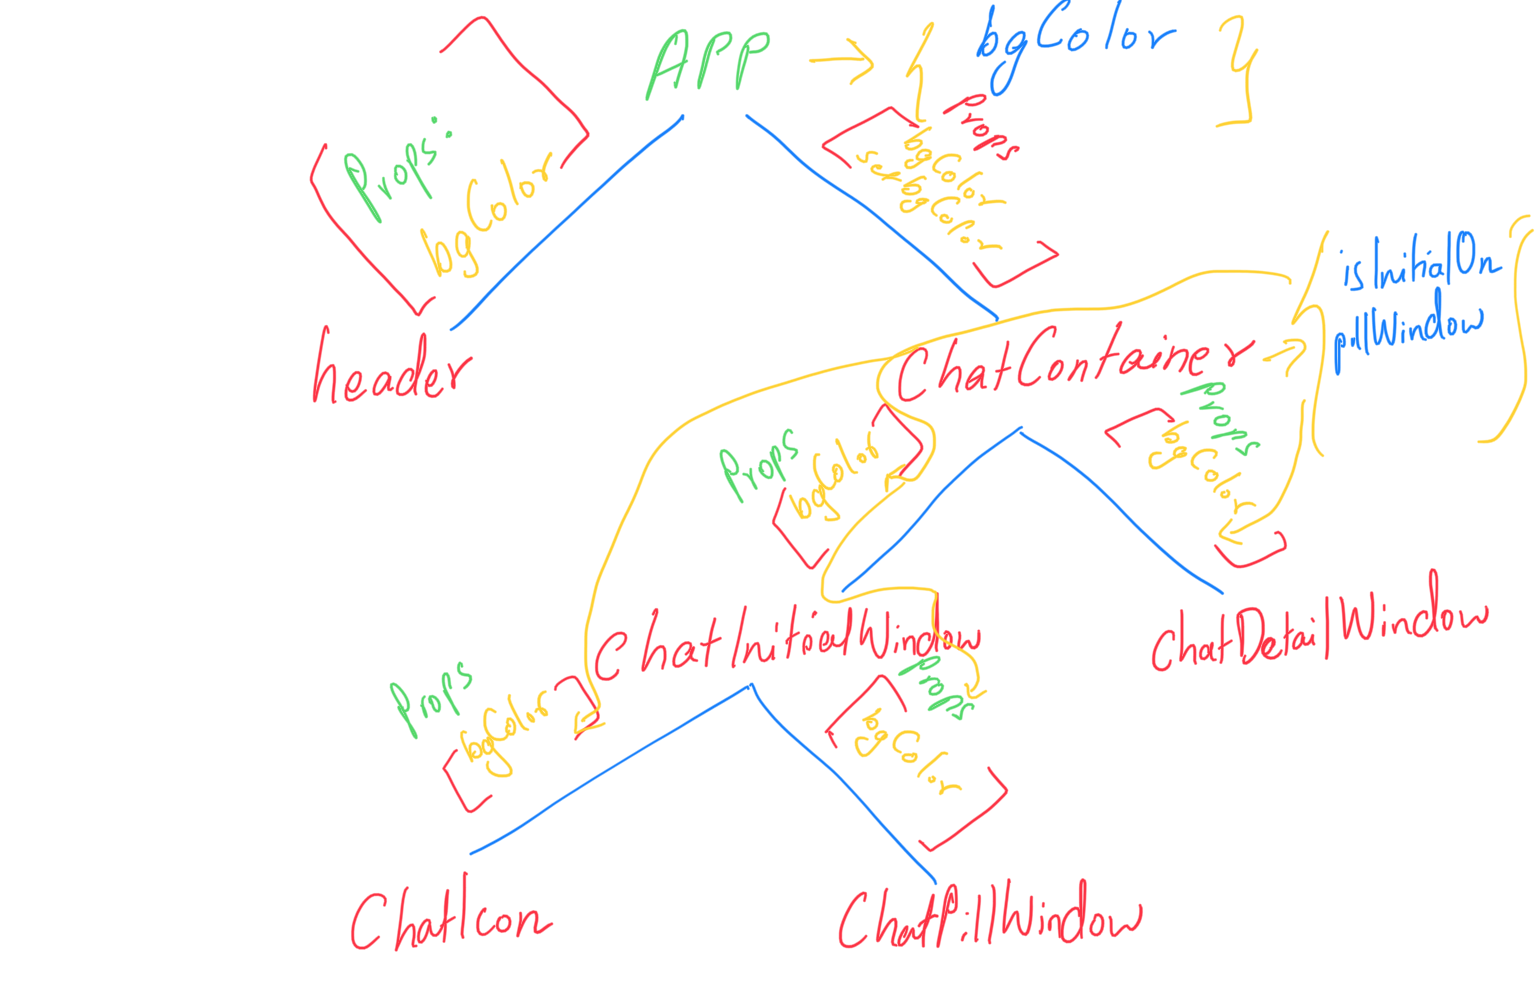 APP → { bgColor }
Props:
bgColor
Props
bgColor
setbgColor
header
ChatContainer → {
isInitialOn
pillWindow
}
Props
bgColor
Props
bgColor
ChatInitialWindow
ChatDetailWindow
Props
bgColor
Props
bgColor
ChatIcon
ChatPillWindow